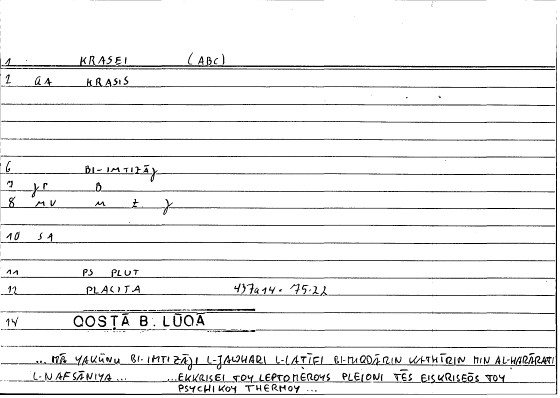 1 KRASEI (ABC)
2 GA KRASIS
6 BI-IMTIZĀJ
7 gr B
8 MV M Z J
10 SA
11 PS PLUT
12 PLACITA 437a14 · 75.22
14 QOSṬĀ B. LŪQĀ
... MĀ YAKŪNU BI-IMTIZĀJI L-JAWHARI L-LAṬĪFI BI-MIQDĀRIN KATHĪRIN MIN AL-ḤARĀRATI
L-NAFSĀNIYA ... ...EKKRISEI TOY LEPTOMEROYS PLEIONI TĒS EISKRISEŌS TOY
PSYCHIKOY THERMOY ...